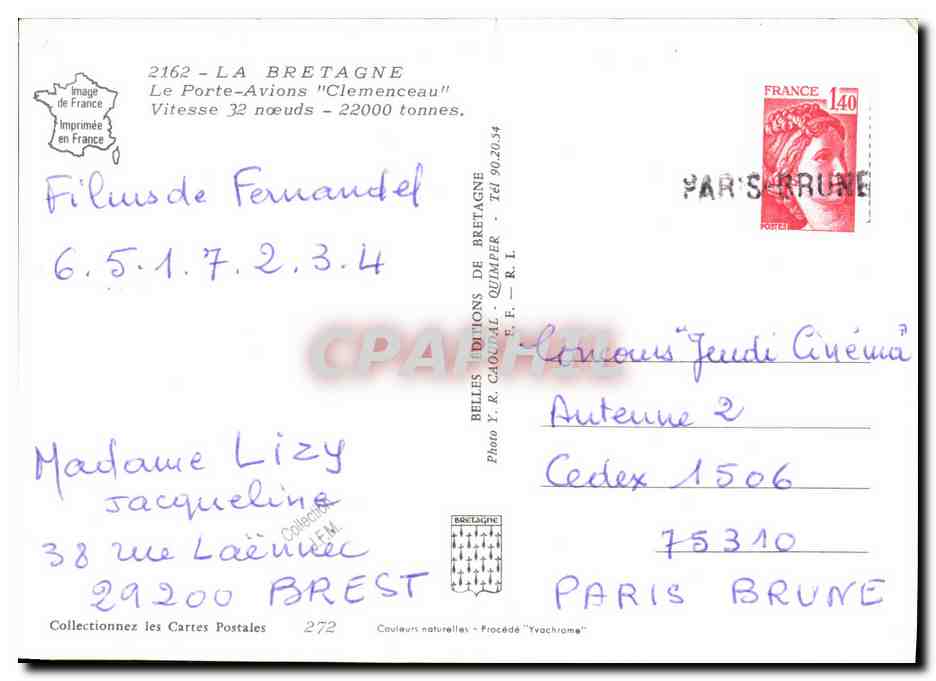 2162 - LA BRETAGNE
Le Porte-Avions "Clemenceau"
Vitesse 32 nœuds - 22000 tonnes.
Image
de France
Imprimée
en France
Films de Fernandel
6.5.1.7.2.3.4
Madame Lizy
Jacqueline
38 rue Laënnec
29200 BREST
Collection
J.F.M.
Collectionnez les Cartes Postales 272 Couleurs naturelles - Procédé "Yvachrome"
BELLES ÉDITIONS DE BRETAGNE
Photo Y. R. CAOUDAL - QUIMPER - Tél 90.20.54
E. F. — R. I.
BRETAGNE
CPAPHIL
FRANCE
1,40
POSTES
PARIS-BRUNE
Concours "Jeudi Cinéma"
Antenne 2
Cedex 1506
75310
PARIS BRUNE